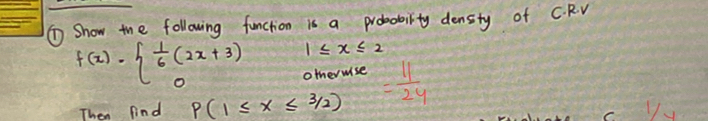 ① Show the following function is a probability densty of C.R.V
f(x) = { 1/6 (2x + 3) 1 ≤ x ≤ 2
0 otherwise
= 11/24
Then find P(1 ≤ x ≤ 3/2)
1/4